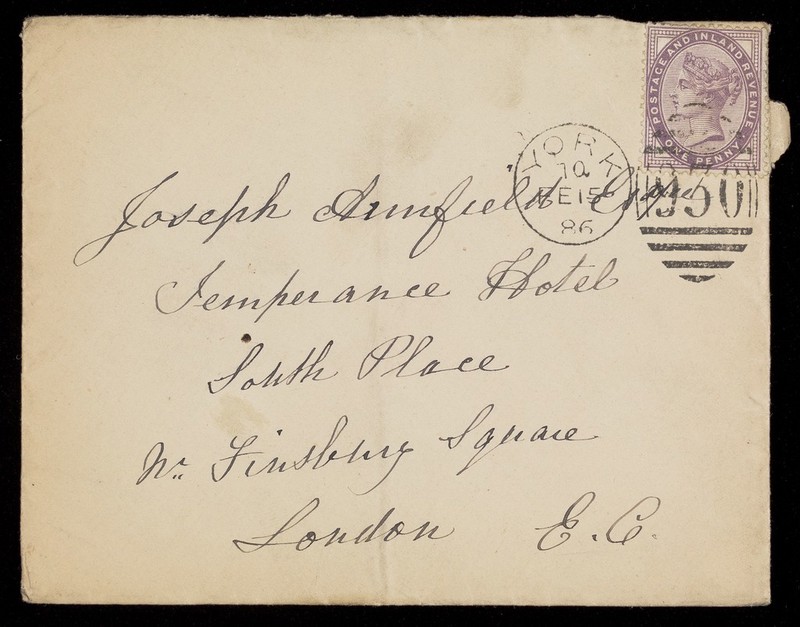 POSTAGE AND INLAND REVENUE
ONE PENNY
YORK
FE 15
86
950
Joseph Armfield Esqre
Temperance Hotel
South Place
Nr. Finsbury Square
London E.C.